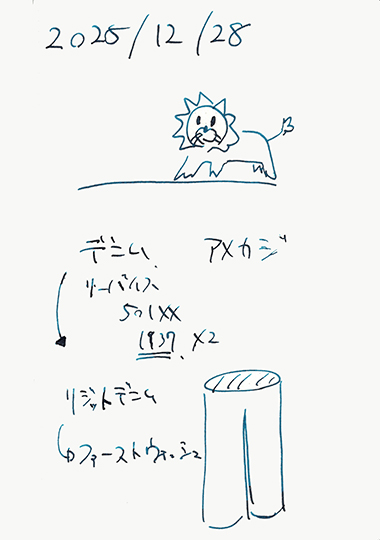 2025/12/28
デニム アメカジ
リーバイス
501XX
1937 X2
リジットデニム
ファーストウォッシュ